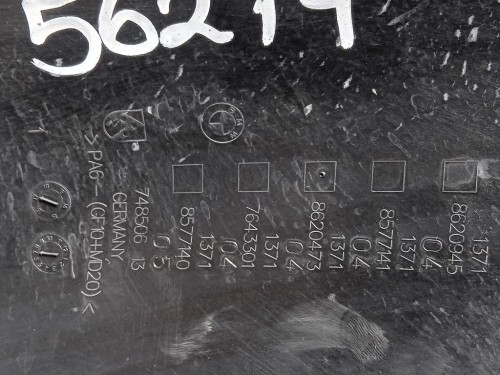 56214
1371
8620945
04
1371
8577141
04
1371
8620473
04
1371
7643301
04
1371
8577140
05
748506 13
GERMANY
>PA6-(GF10+MD20)<